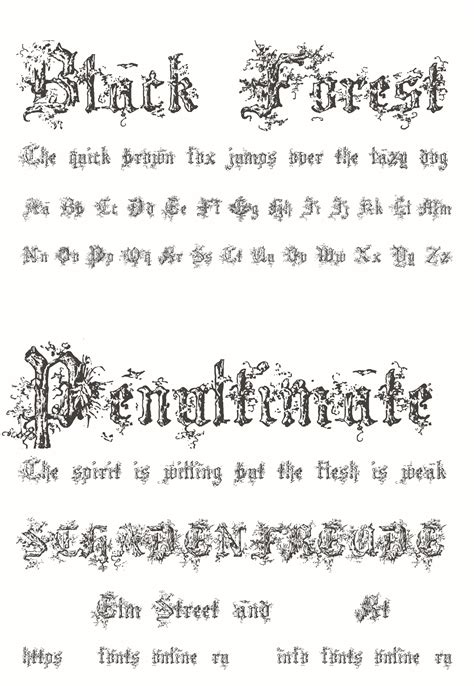 Black Forest
The quick brown fox jumps over the lazy dog
Aa Bb Cc Dd Ee Ff Gg Hh Ii Jj Kk Ll Mm
Nn Oo Pp Qq Rr Ss Tt Uu Vv Ww Xx Yy Zz
Penultimate
The spirit is willing but the flesh is weak
SCHADENFREUDE
Elm Street and
https fonts online ru info fonts online ru